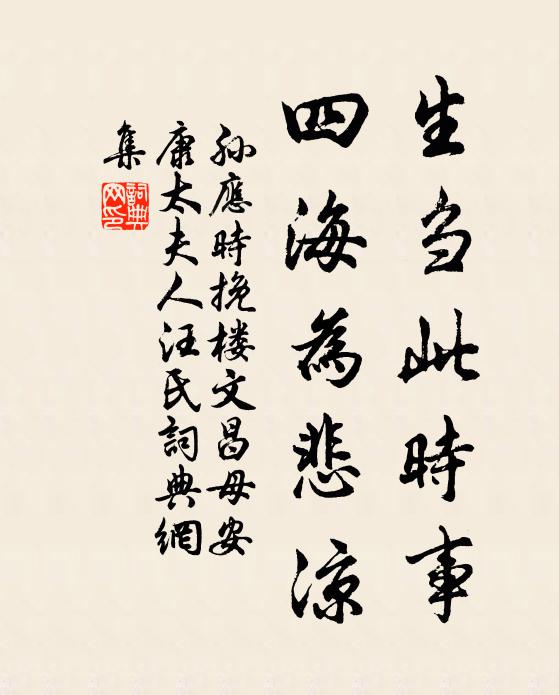 生当此時事
四海為悲涼
孙應時挽楼文昌母安
康太夫人汪氏詞典網
集
詞典网印